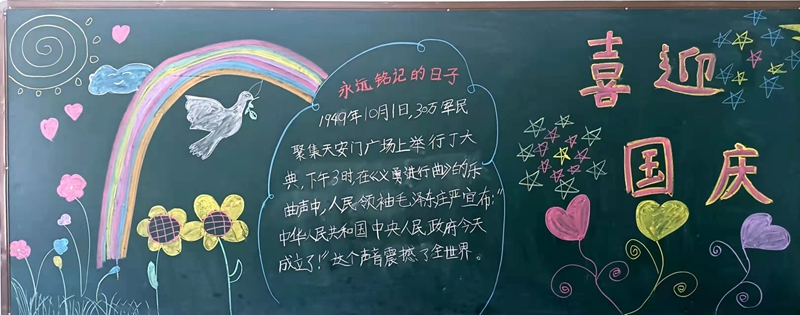 永远铭记的日子
1949年10月1日,30万军民
聚集天安门广场上举行了大
典,下午3时,在《义勇进行曲》的乐
曲声中,人民领袖毛泽东庄严宣布:“
中华人民共和国中央人民政府今天
成立了!”这个声音震撼了全世界。
喜迎
国庆